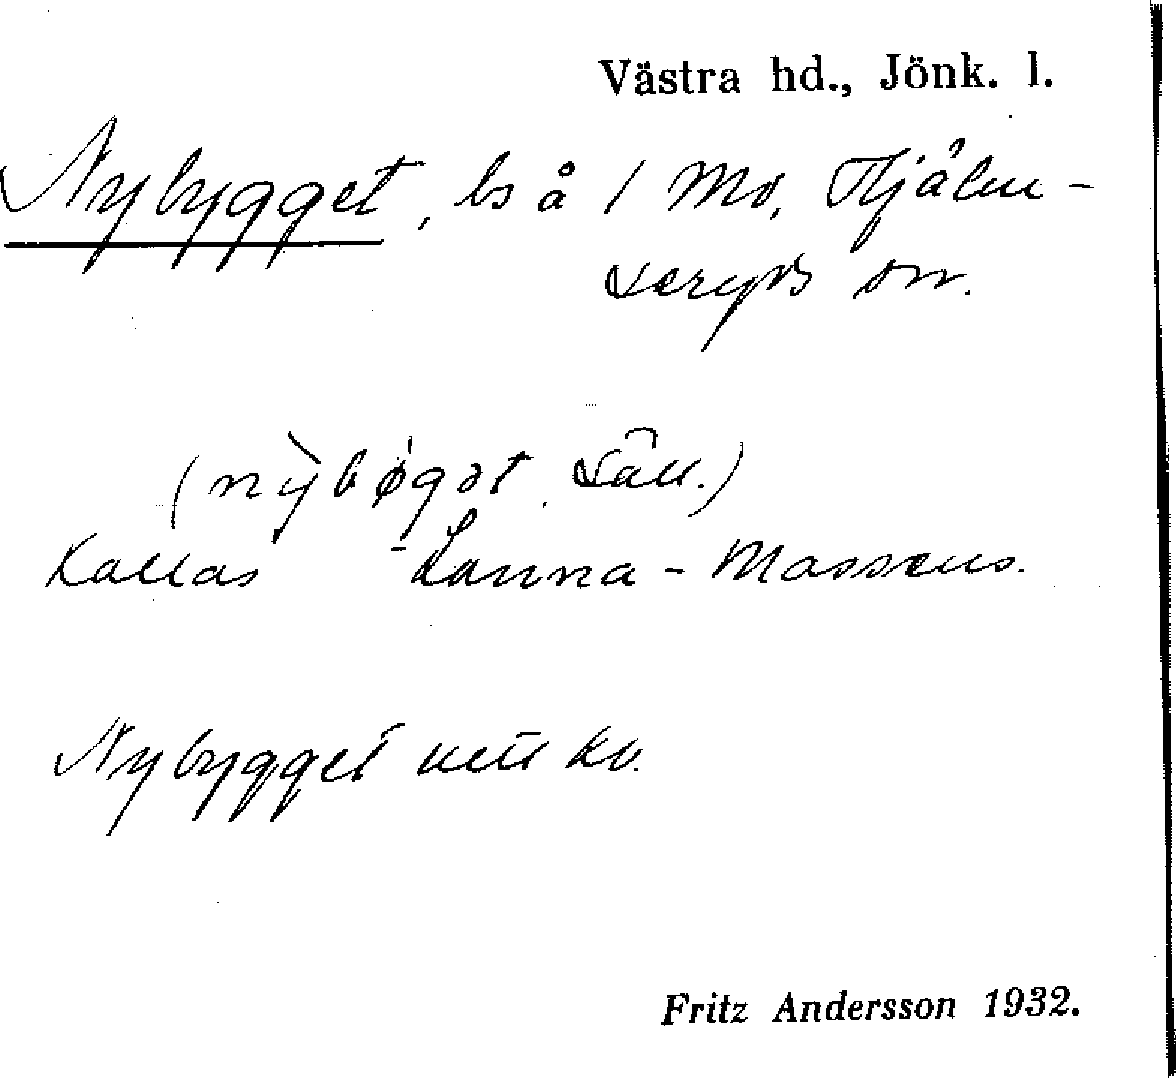 Västra hd., Jönk. l.
Nybygget, bs å / Mo, Hjälm-
seryds sn.
(nỳbøgət, säll.)
Kallas Lanna-Massens.
Nybygget utt kv.
Fritz Andersson 1932.